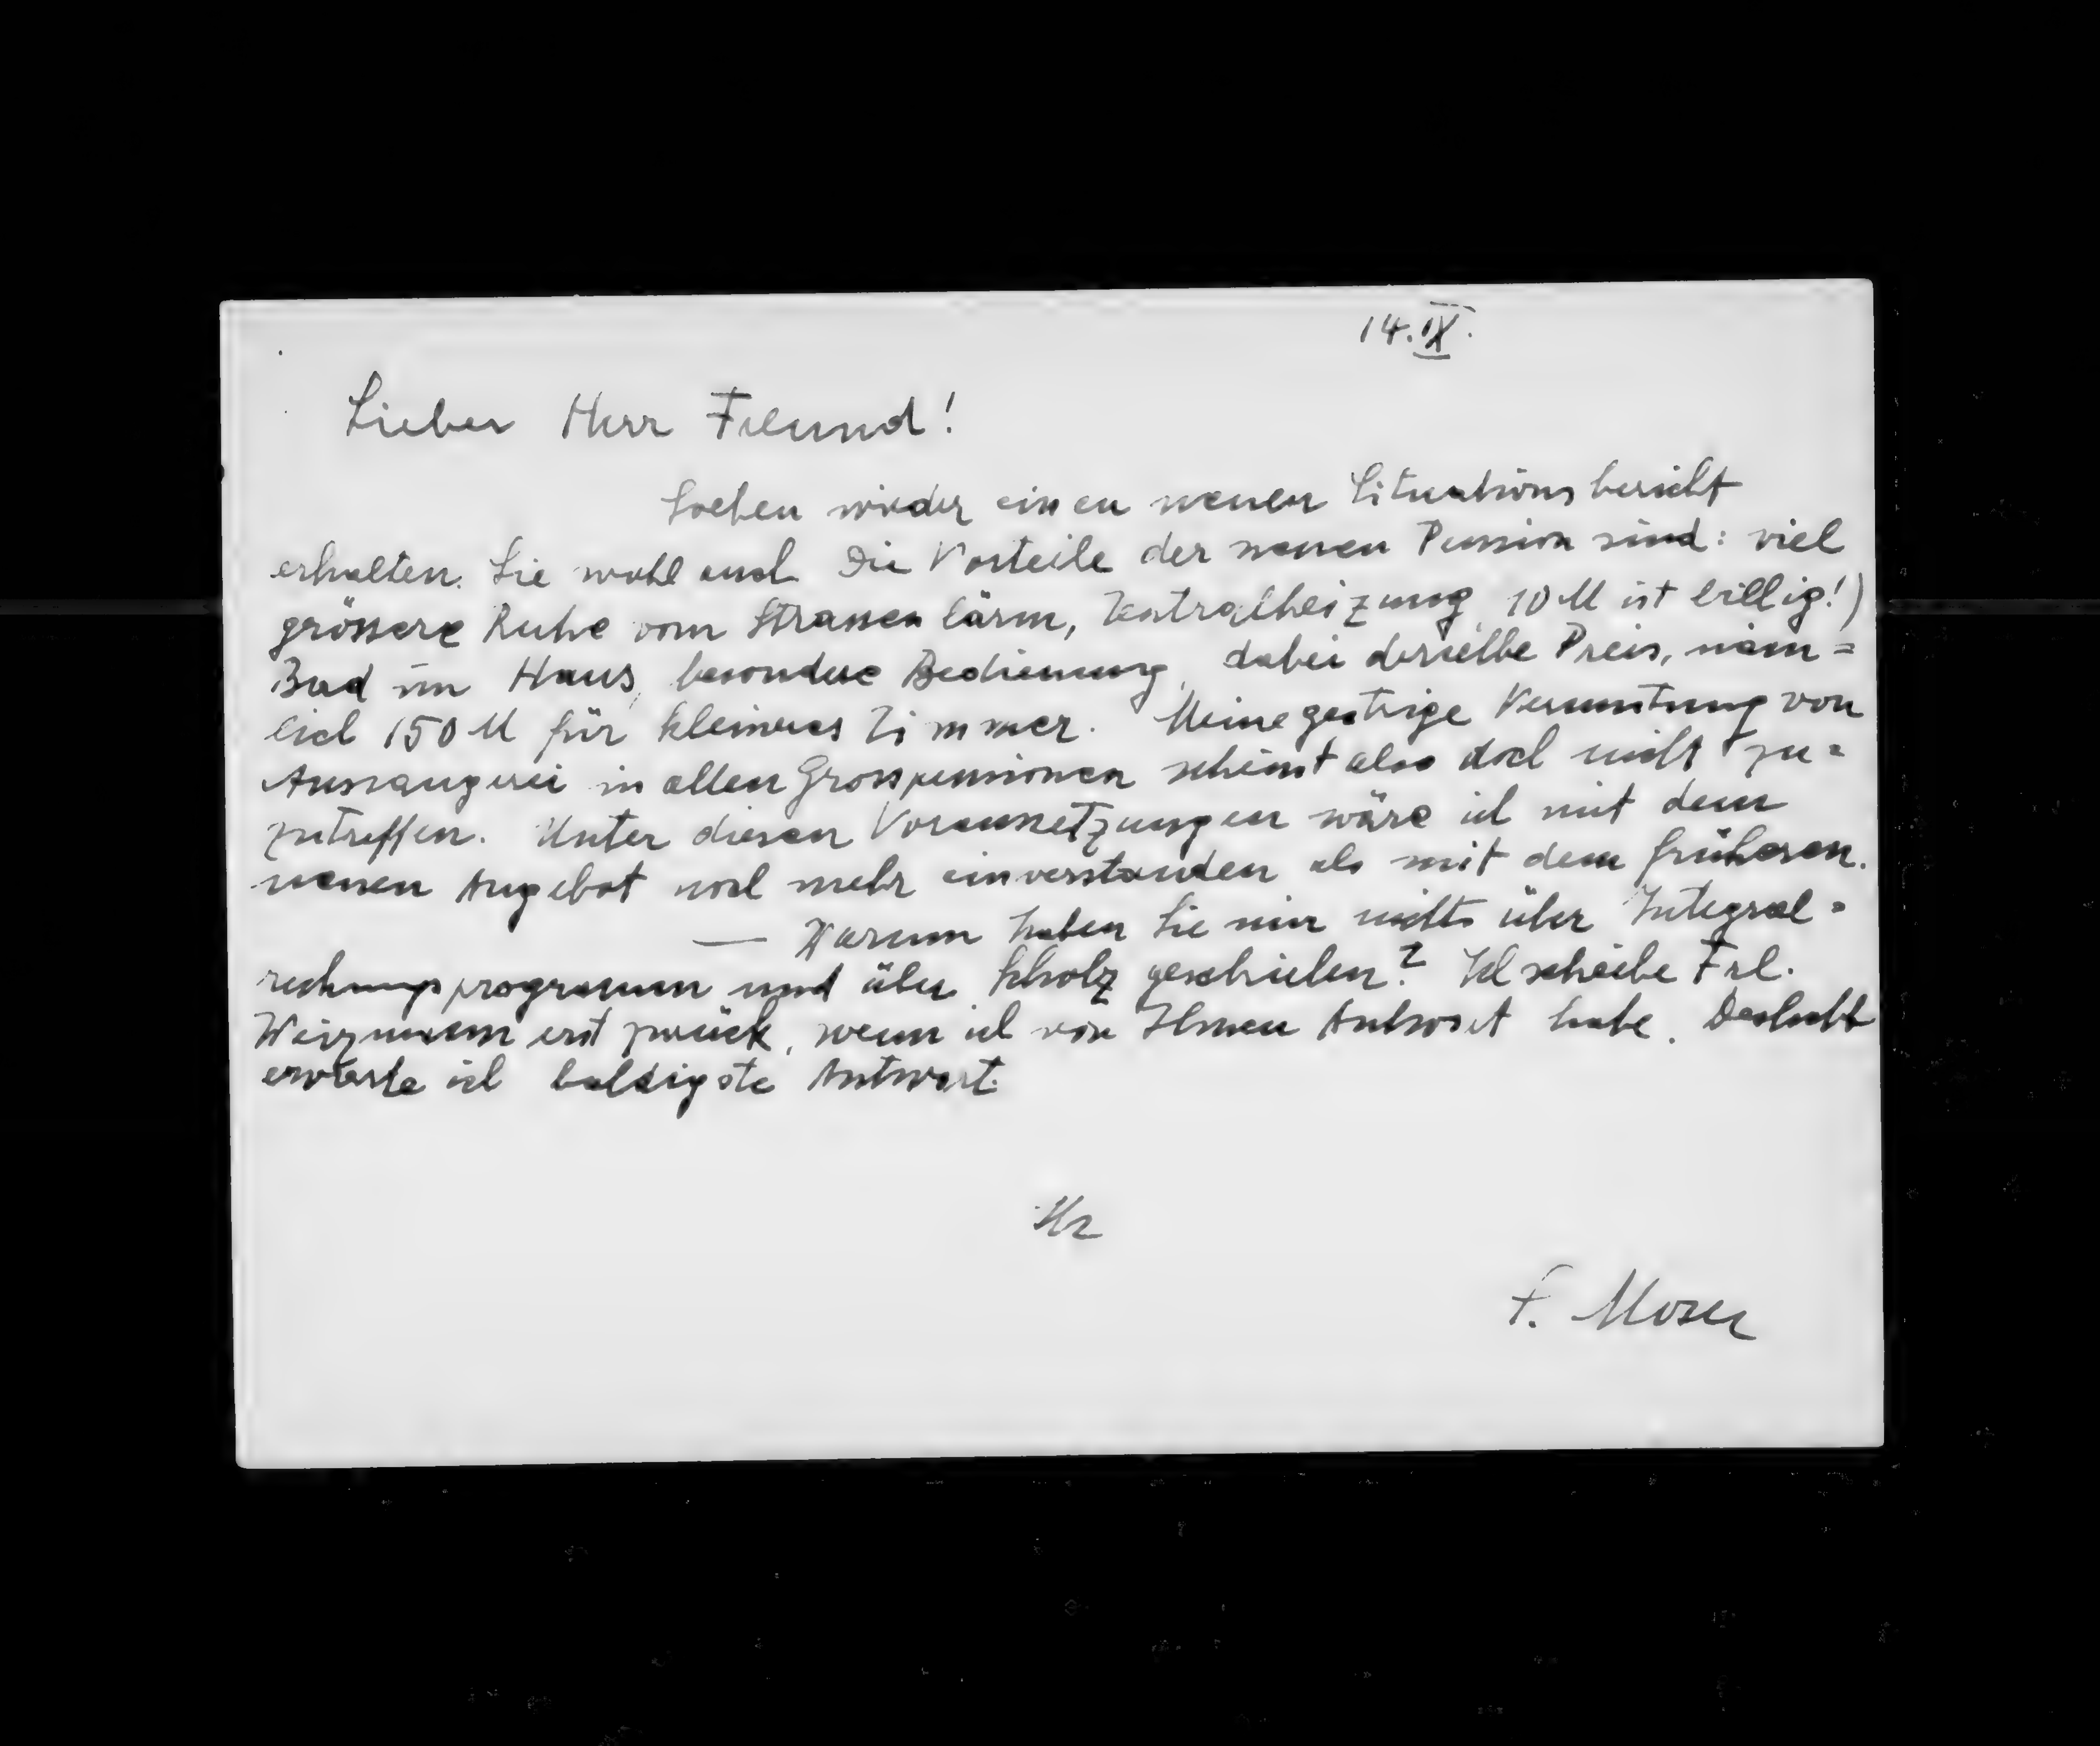 14.IX.
Lieber Herr Freund!
Soeben wieder einen neuen Situationsbericht
erhalten. Sie wohl auch. Die Vorteile der neuen Pension sind: viel
grössere Ruhe vom Strassenlärm, Zentralheizung, 10 M ist billig!)
Bad im Haus, besondere Bedienung, dabei derselbe Preis, näm=
lich 150 M für kleineres Zimmer. Meine gestrige Vermutung von
Aussaugerei in allen Grosspensionen scheint also doch nicht zu=
zutreffen. Unter diesen Voraussetzungen wäre ich mit dem
neuen Angebot noch mehr einverstanden als mit dem früheren.
— Warum haben Sie mir nichts über Integral=
rechnungsprogramm und über Scholz geschrieben? Ich schreibe Frl.
Weizmann erst zurück, wenn ich von Ihnen Antwort habe. Deshalb
erwarte ich baldigste Antwort.
Ihr
F. Moser